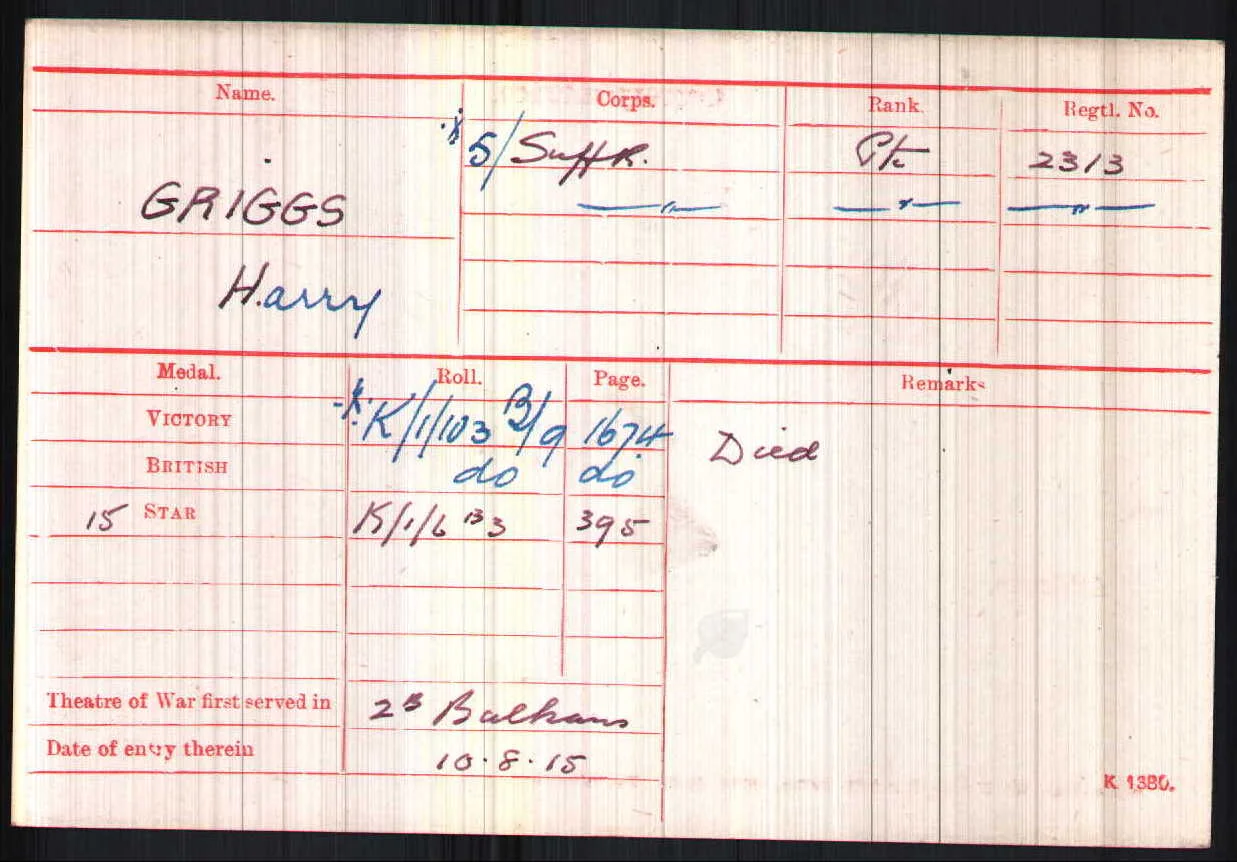 Name. Corps. Rank. Regtl. No.
5/Suff R. Pte 2313
GRIGGS —"— —"— —"—
Harry
Medal. Roll. Page. Remarks
VICTORY K/1/103 B/9 1674 Died
BRITISH do do
15 STAR K/1/6 B3 395
Theatre of War first served in 2B Balkans
Date of entry therein 10.8.15
K 1380.